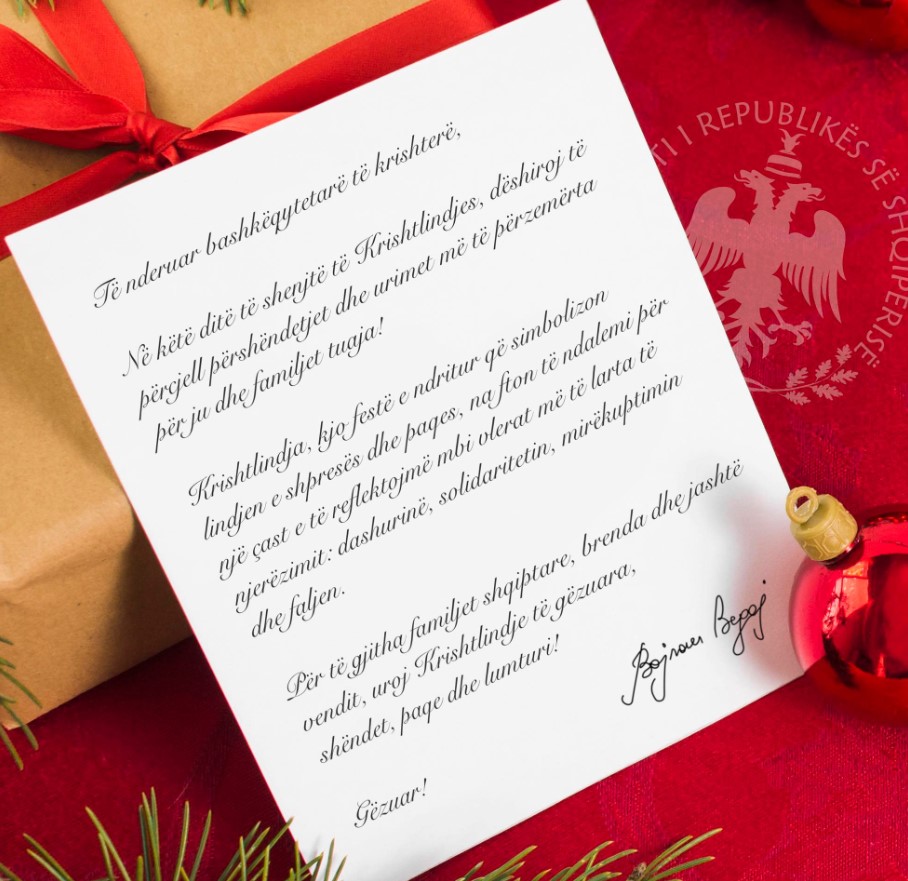 Të nderuar bashkëqytetarë të krishterë,
Në këtë ditë të shenjtë të Krishtlindjes, dëshiroj të
përcjell përshëndetjet dhe urimet më të përzemërta
për ju dhe familjet tuaja!
Krishtlindja, kjo festë e ndritur që simbolizon
lindjen e shpresës dhe paqes, na fton të ndalemi për
një çast e të reflektojmë mbi vlerat më të larta të
njerëzimit: dashurinë, solidaritetin, mirëkuptimin
dhe faljen.
Për të gjitha familjet shqiptare, brenda dhe jashtë
vendit, uroj Krishtlindje të gëzuara,
shëndet, paqe dhe lumturi!
Gëzuar!
TI I REPUBLIKËS SË SHQIPËRISË